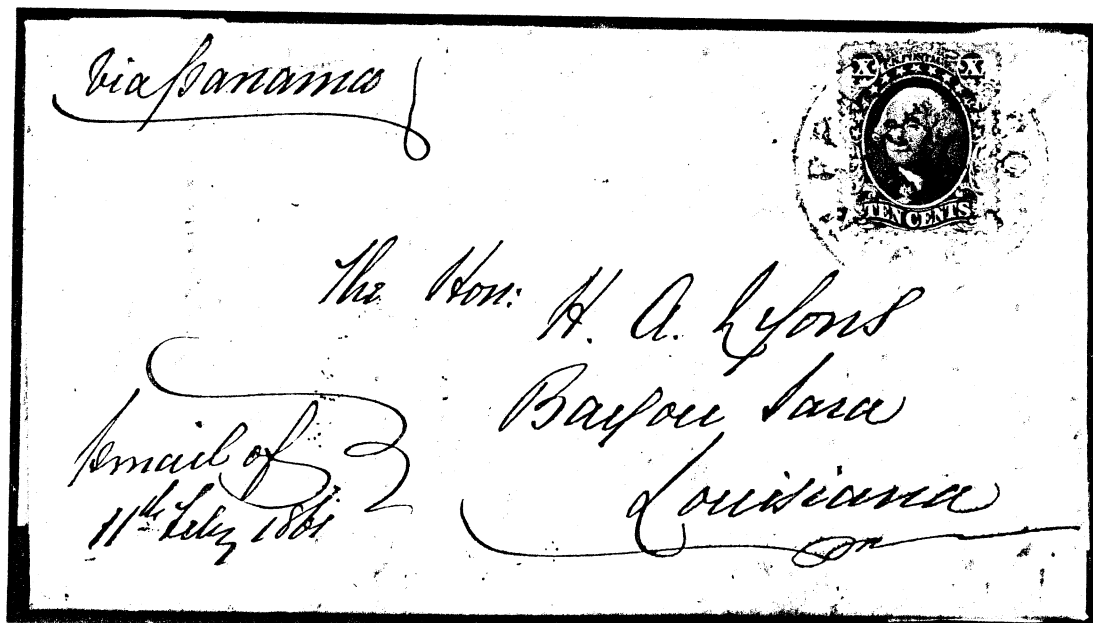 Via Panama
X U.S. POSTAGE X
TEN CENTS
The Hon: H. A. Lyons
Bayou Sara
Louisiana
mail of
11th Feby 1861